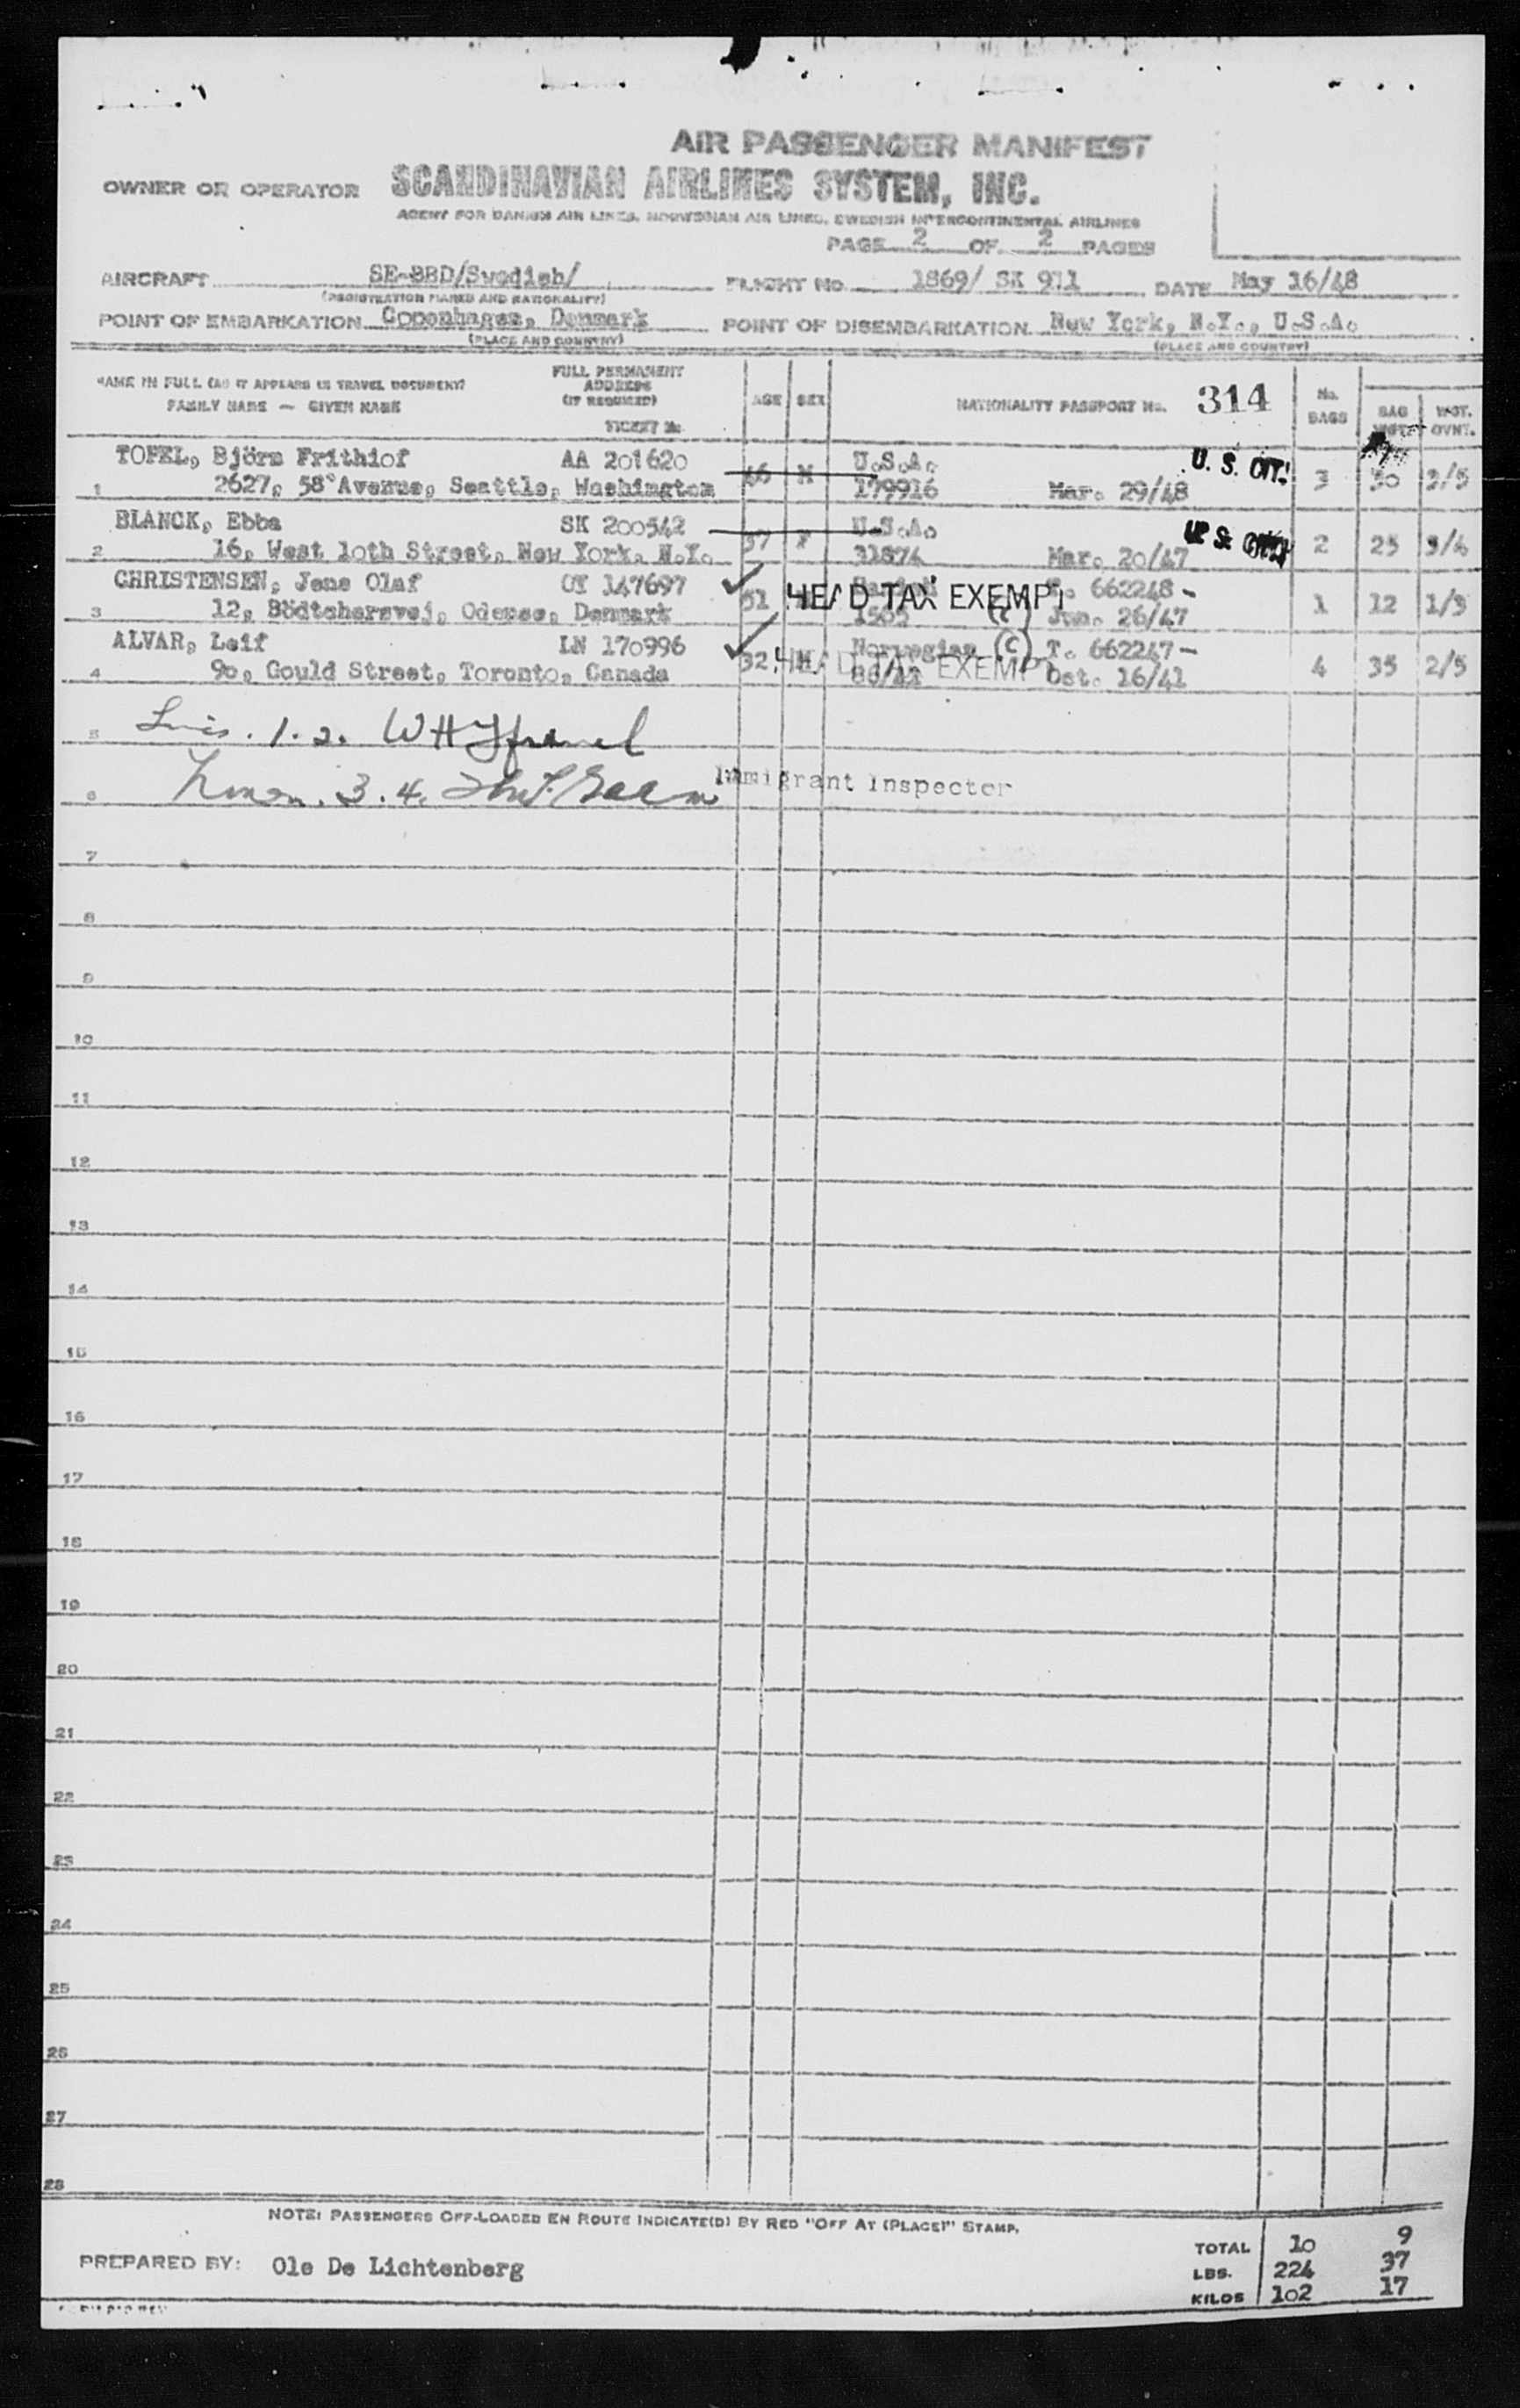 AIR PASSENGER MANIFEST
OWNER OR OPERATOR SCANDINAVIAN AIRLINES SYSTEM, INC.
AGENT FOR DANISH AIR LINES, NORWEGIAN AIR LINES, SWEDISH INTERCONTINENTAL AIRLINES
PAGE 2 OF 2 PAGES
AIRCRAFT SE-BBD/Swedish/ FLIGHT No. 1869/ SK 911 DATE May 16/48
(REGISTRATION MARKS AND NATIONALITY)
POINT OF EMBARKATION Copenhagen, Denmark POINT OF DISEMBARKATION New York, N.Y., U.S.A.
(PLACE AND COUNTRY) (PLACE AND COUNTRY)
NAME IN FULL (AS IT APPEARS IN TRAVEL DOCUMENT) FULL PERMANENT ADDRESS (IF REQUIRED)
FAMILY NAME — GIVEN NAME TICKET No. AGE SEX NATIONALITY PASSPORT No. 314 No. BAGS BAG WGT. OVNT.
TOFEL, Björn Frithiof AA 201620 46 M U.S.A. U. S. CIT. 3 30 2/5
1 2627, 58'Avenue, Seattle, Washington 179916 Mar. 29/48
BLANCK, Ebba SK 200542 37 F U.S.A. 2 25 3/4
2 16, West 10th Street, New York. N.Y. 31874 Mar. 20/47
CHRISTENSEN, Jens Olaf 147697 51 HEAD TAX EXEMPT 662248 - 1 12 1/3
3 12, Bödtchersvej, Odense, Denmark Jun. 26/47
ALVAR, Leif LN 170996 32 M Norwegian (C) T. 662247 - 4 35 2/5
4 90, Gould Street, Toronto, Canada HEAD TAX EXEMPT Oct. 16/41
5 1. 2.
6 3. 4. Immigrant Inspector
7
8
9
10
11
12
13
14
15
16
17
18
19
20
21
22
23
24
25
26
27
28
NOTE: PASSENGERS OFF-LOADED EN ROUTE INDICATE(D) BY RED "OFF AT (PLACE)" STAMP.
TOTAL 10 9
PREPARED BY: Ole De Lichtenberg LBS. 224 37
KILOS 102 17